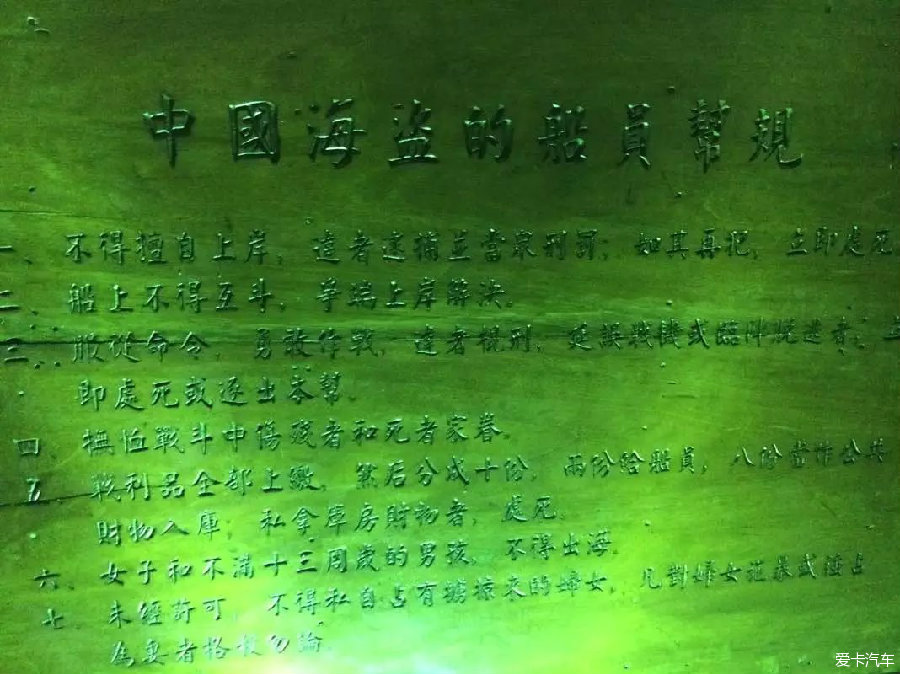 中國海盜的船員幫規
一、不得擅自上岸，違者逮捕並當眾刑罰；如其再犯，立即處死
二、船上不得互斗，爭端上岸解決。
三、服從命令，勇敢作戰，違者棍刑，延誤戰機或臨陣脫逃者，立
即處死或逐出本幫。
四、撫恤戰斗中傷殘者和死者家眷。
五、戰利品全部上繳，然后分成十份，兩份給船員，八份當作公共
財物入庫；私拿庫房財物者，處死。
六、女子和不滿十三周歲的男孩，不得出海。
七、未經許可，不得私自占有擄掠來的婦女，凡對婦女施暴或強占
為妻者格殺勿論。
爱卡汽车